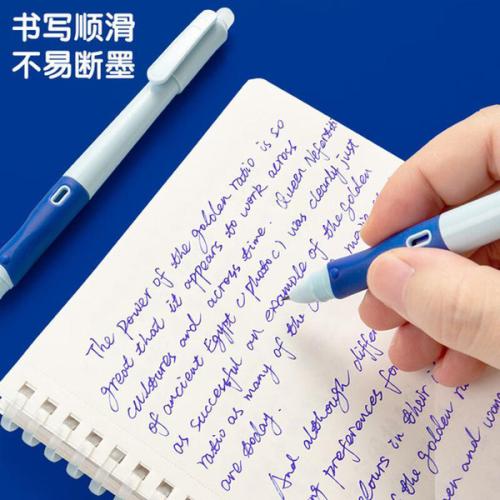 书写顺滑
不易断墨
The power of the golden ratio is so
great that it appears to work across
cultoures and across time. Queen Nefertiti
of ancient Egypt (photo c) was clearly just
as successful an example of the golden
ratio as many of the
are today.
And although differ
of preferences fo
colours in their
the golden ra
men and wom